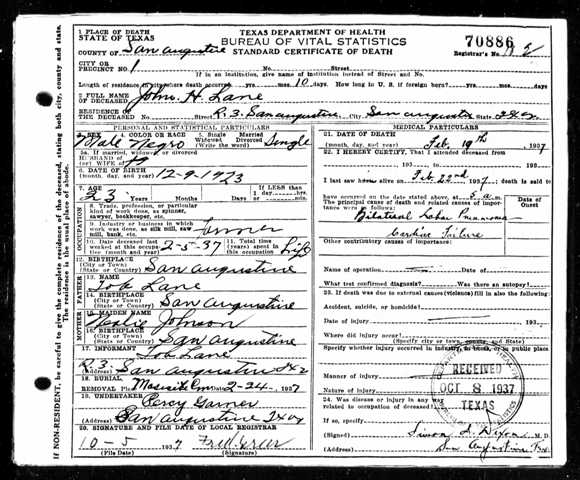 1 PLACE OF DEATH
STATE OF TEXAS
TEXAS DEPARTMENT OF HEALTH
BUREAU OF VITAL STATISTICS
STANDARD CERTIFICATE OF DEATH
70886
COUNTY OF San Augustine
Registrar's No.
CITY OR
PRECINCT NO. 1
No. Street
If in an institution, give name of institution instead of Street and No.
Length of residence where death occurred yrs. mos. 10 days. How long in U. S. if foreign born? yrs. mos. days
2 FULL NAME
OF DECEASED John H. Lane
RESIDENCE OF
THE DECEASED No. Street R. 3. San Augustine City San Augustine State Tex
PERSONAL AND STATISTICAL PARTICULARS
3. SEX 4. COLOR OR RACE 5. Single Married
Widowed Divorced
(Write the word)
Male Negro Single
5a. If married, widowed, or divorced
HUSBAND of
(or) WIFE of
6. DATE OF BIRTH
(month, day, and year) 12-9-1923
7. AGE
23 Years Months Days
If LESS than
1 day, hrs.
or min.
OCCUPATION
8. Trade, profession, or particular
kind of work done, as spinner,
sawyer, bookkeeper, etc.
9. Industry or business in which
work was done, as silk mill, saw
mill, bank, etc.
10. Date deceased last
worked at this occupation 2-5-37
11. Total time
(years) spent in
this occupation life
12. BIRTHPLACE
(City or Town)
(State or Country) San Augustine
FATHER
13. NAME
Tob Lane
14. BIRTHPLACE
(City or Town)
(State or Country) San Augustine
MOTHER
15. MAIDEN NAME
Johnson
16. BIRTHPLACE
(City or Town)
(State or Country) San Augustine
17. INFORMANT
Tob Lane
R. 3. San Augustine Tex
18. BURIAL,
REMOVAL Place Date 2-24- 1937
19. UNDERTAKER
Percy Garner
(Address) San Augustine Tex
20. SIGNATURE AND FILE DATE OF LOCAL REGISTRAR
10-5 1937 Fred Greer
(File Date) (Signature)
MEDICAL PARTICULARS
21. DATE OF DEATH
(month, day, and year) Feb. 19th 1937
22. I HEREBY CERTIFY, That I attended deceased from
193 to 193
I last saw him alive on Feb 22nd 1937; death is said to
have occurred on the date above stated, at a.m.
The principal cause of death and related causes of importance were as follows:
Date of
Onset
Bilateral Lobar Pneumonia
Cardiac Failure
Other contributory causes of importance:
Name of operation Date of
What test confirmed diagnosis? Was there an autopsy?
23. If death was due to external causes (violence) fill in also the following
Accident, suicide, or homicide?
Date of injury 193
Where did injury occur?
(Specify city or town, county, and State)
Specify whether injury occurred in industry, in home, or in public place
Manner of injury
Nature of injury
RECEIVED
OCT 8 1937
TEXAS
24. Was disease or injury in any way
related to occupation of deceased?
If so, specify
(Signed) M. D.
(Address) San Augustine Tex
IF NON-RESIDENT, be careful to give the complete residence of the deceased, stating both city, county and state.
The residence is the usual place of abode.